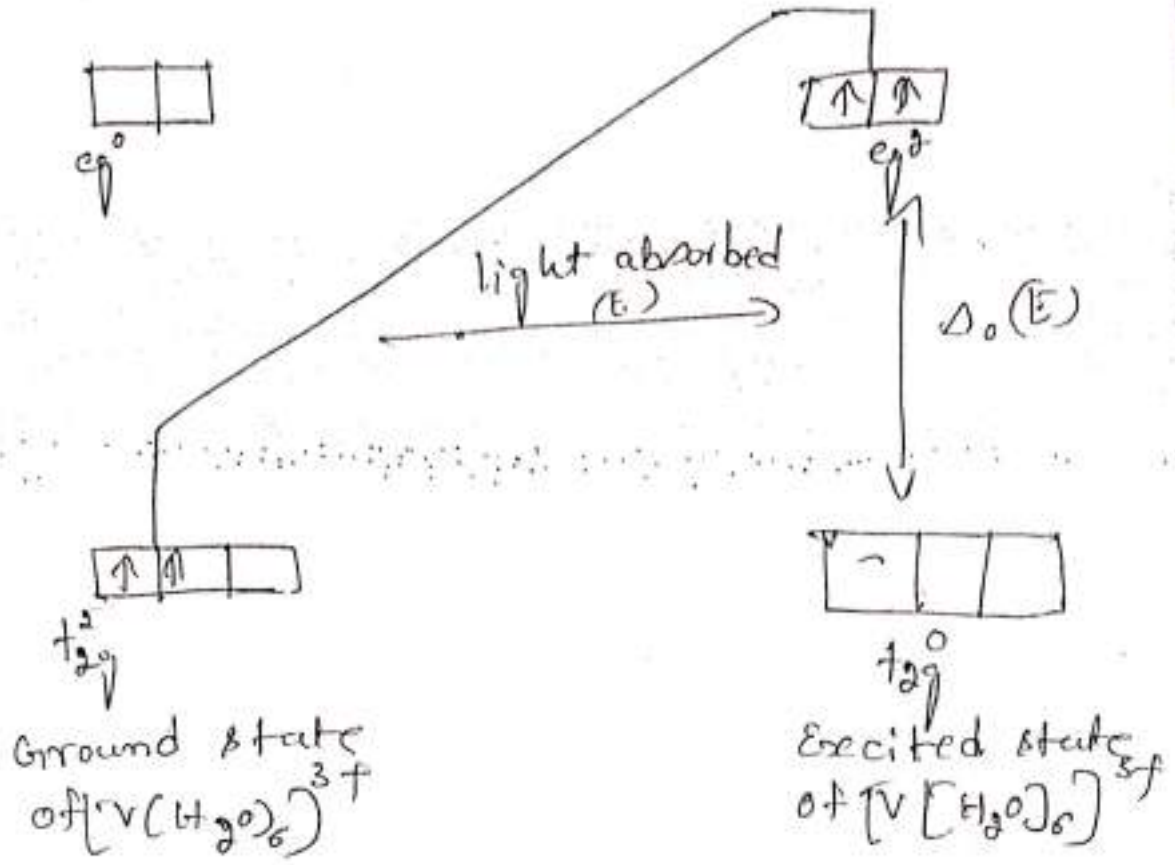 eg⁰
eg²
light absorbed
(E)
Δ₀(E)
t₂g²
t₂g⁰
Ground state
of [V(H₂O)₆]³⁺
Excited state
of [V[H₂O]₆]³⁺